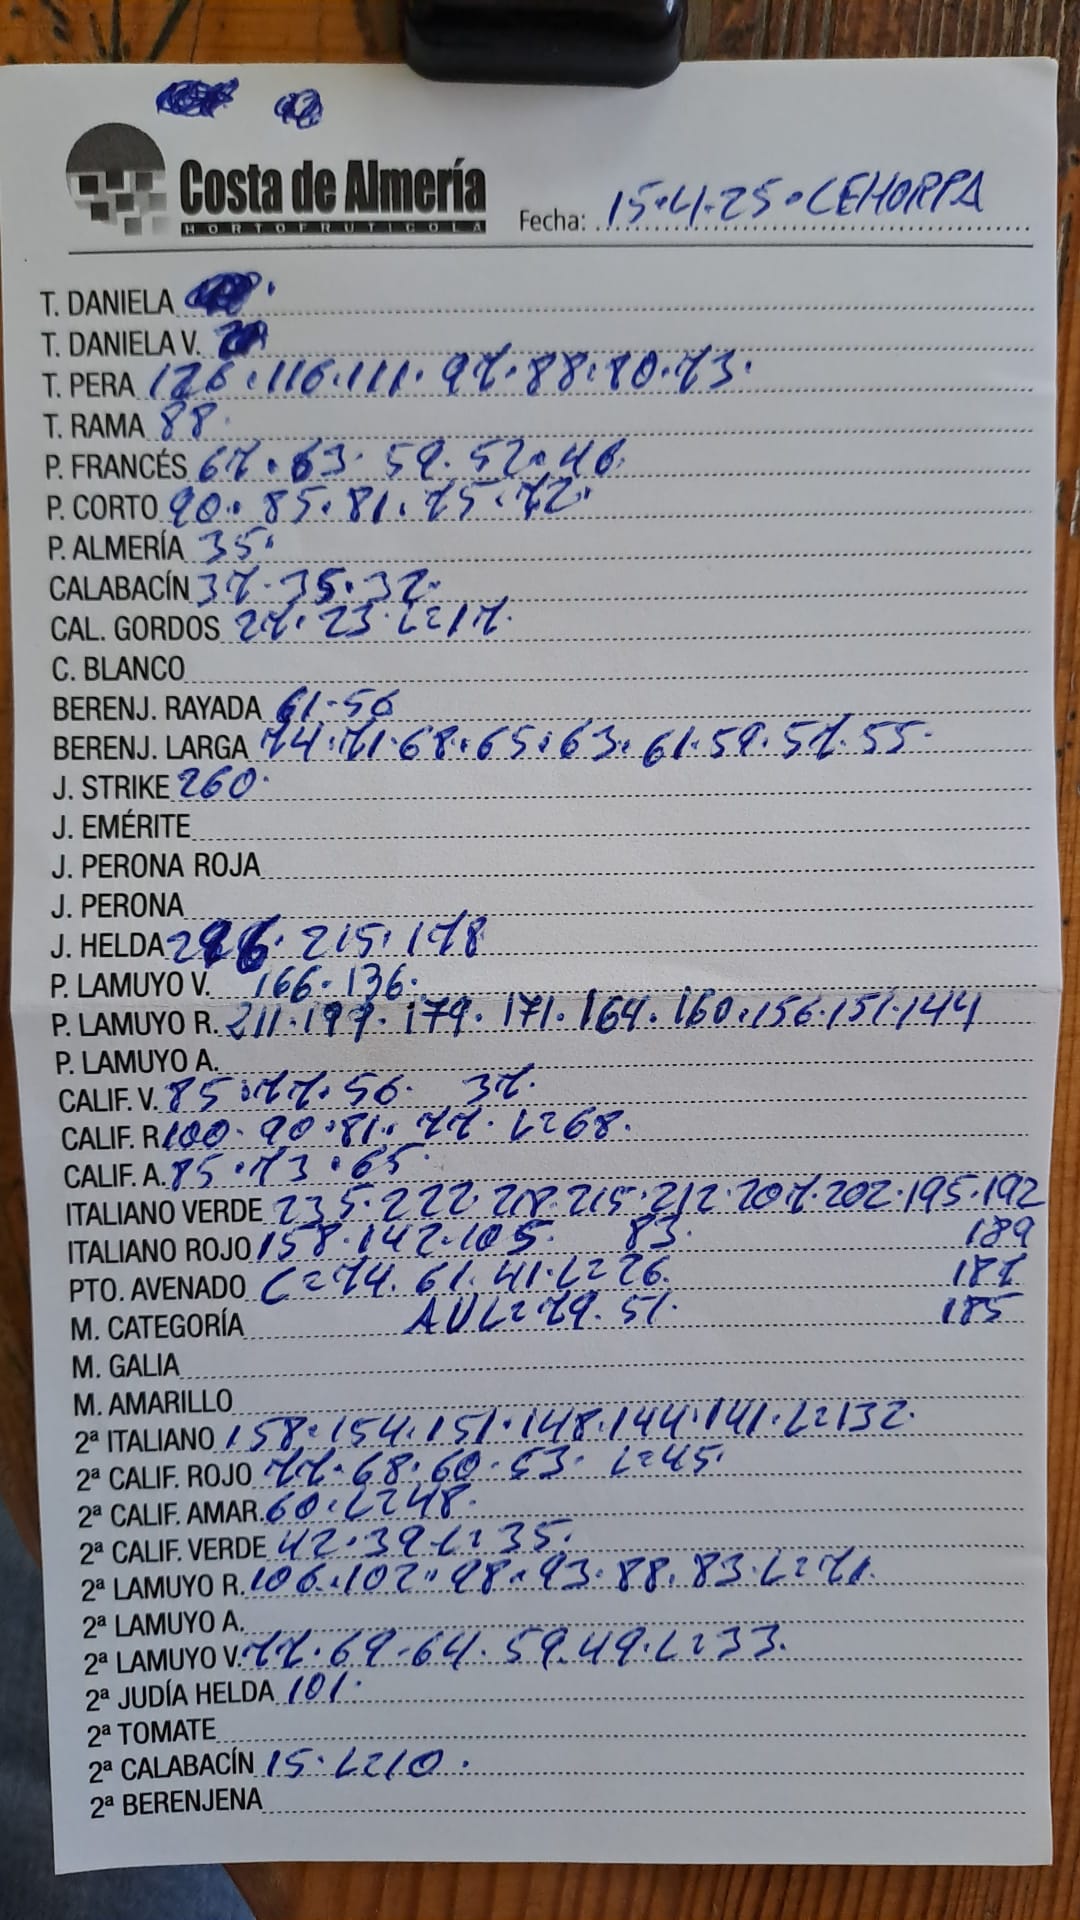 Costa de Almería
HORTOFRUTICOLA
Fecha: 15·4·25·CEHORPA
T. DANIELA
T. DANIELA V.
T. PERA 126·116·111·97·88·80·73·
T. RAMA 88·
P. FRANCÉS 67·63·59·52·46·
P. CORTO 90·85·81·75·72·
P. ALMERÍA 35·
CALABACÍN 37·35·32·
CAL. GORDOS 27·23·L=17·
C. BLANCO
BERENJ. RAYADA 61·56
BERENJ. LARGA 74·71·68·65·63·61·59·57·55·
J. STRIKE 260·
J. EMÉRITE
J. PERONA ROJA
J. PERONA
J. HELDA 215·178
P. LAMUYO V. 166·136·
P. LAMUYO R. 211·199·179·171·164·160·156·151·144
P. LAMUYO A.
CALIF. V. 85·77·56· 37·
CALIF. R 100·90·81·77·L=68·
CALIF. A. 85·73·65·
ITALIANO VERDE 235·222·218·215·212·207·202·195·192
ITALIANO ROJO 158·142·105· 83· 189
PTO. AVENADO C=74·61·41·L=26· 187
M. CATEGORÍA AVL=79·51· 185
M. GALIA
M. AMARILLO
2ª ITALIANO 158·154·151·148·144·141·L=132·
2ª CALIF. ROJO 77·68·60·53·L=45·
2ª CALIF. AMAR. 60·L=48·
2ª CALIF. VERDE 42·39·L=35·
2ª LAMUYO R. 106·102·98·93·88·83·L=71·
2ª LAMUYO A.
2ª LAMUYO V. 77·69·64·59·49·L=33·
2ª JUDÍA HELDA 101·
2ª TOMATE
2ª CALABACÍN 15·L=10·
2ª BERENJENA